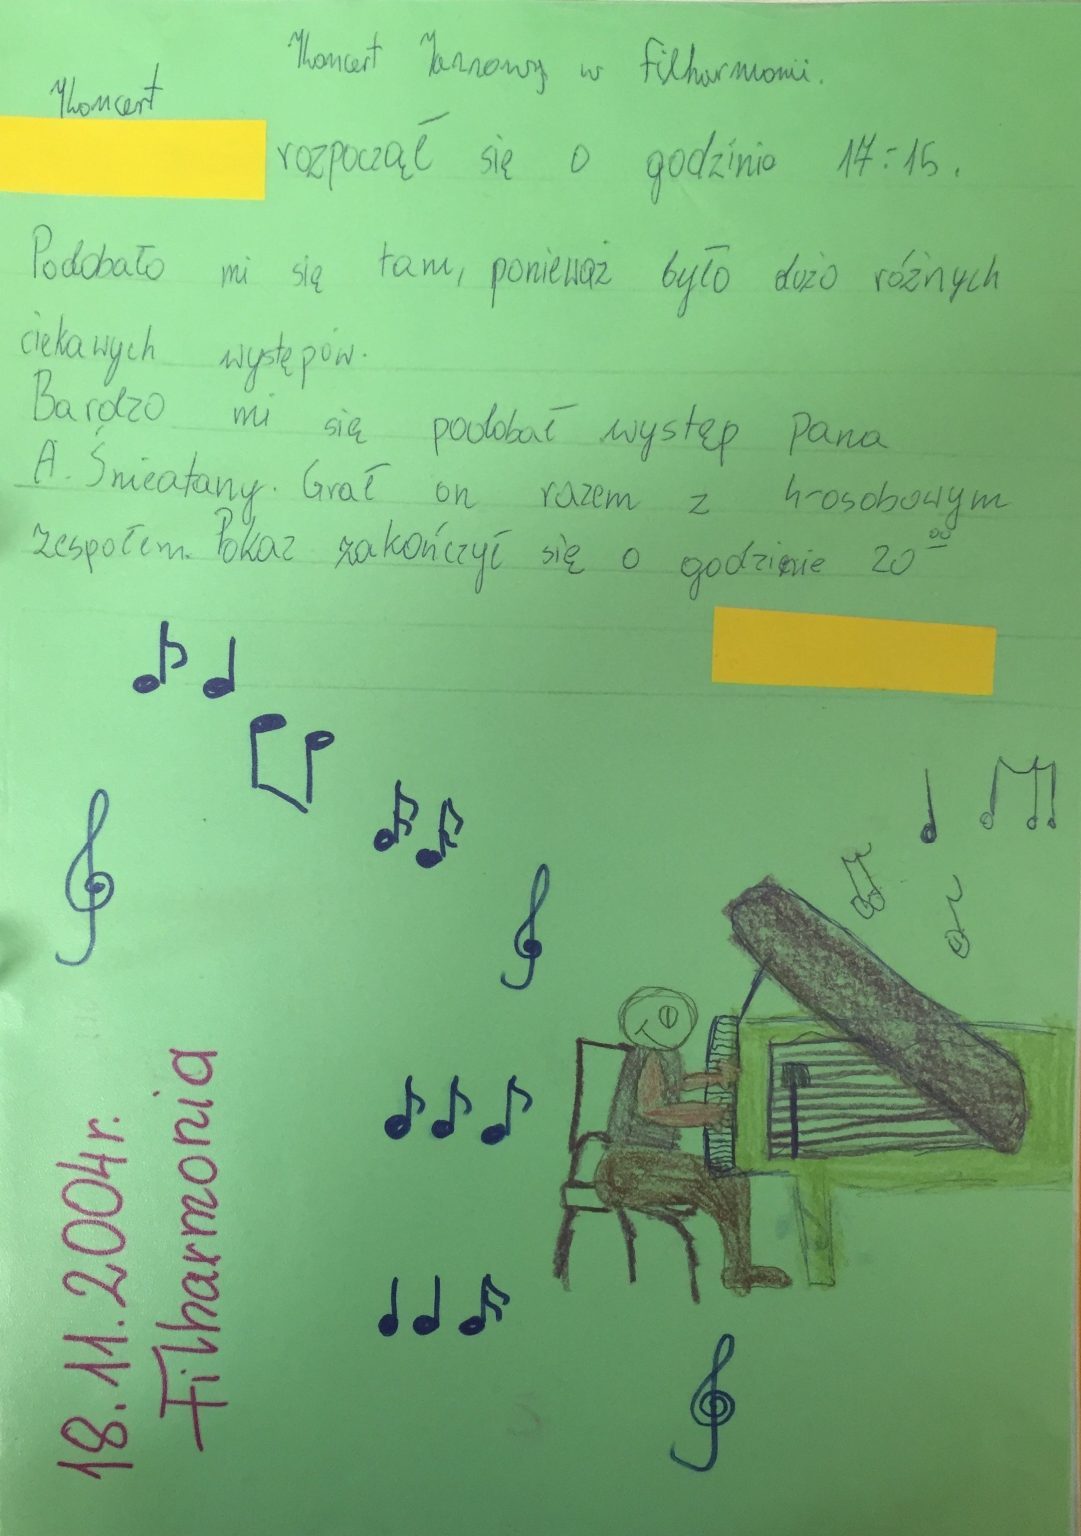 Koncert Jazzowy w filharmonii.
Koncert
rozpoczął się o godzinie 17:15.
Podobało mi się tam, ponieważ było dużo różnych
ciekawych występów.
Bardzo mi się podobał występ Pana
A. Grał on razem z 4-osobowym
zespołem. Pokaz zakończył się o godzinie 20⁰⁰
18.11.2004r.
Filharmonia